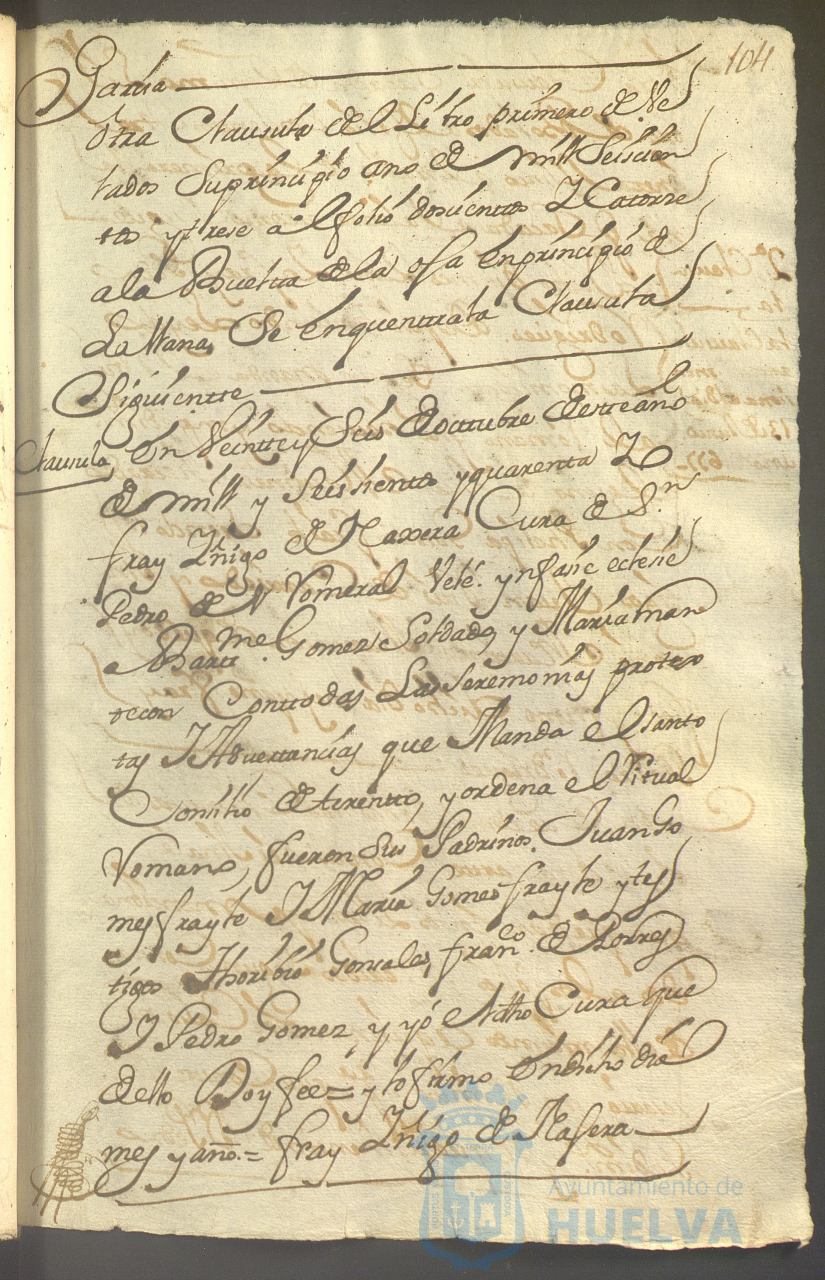 104
Garcia
Otra Clausula del Libro primero de Ve
lados Suprincipio ano de mill Seiscien
tos y trese a el folio dosientos Y Catorze
ala Buelta dela oja enprincipio de
La llana, Se enquentrala Clausula
Siguientte
Clausula, En Veintte y Seis de octubre deeste año
de mill y Seissientos yquarenta Y
fray Yñigo de Naxera Cura de Sn
Pedro de Vomeral Velé. ynfasie eclesie
a Bartme. Gomez Soldado, y Maria man
Contodas Las seremonias protes
tas Y Advertancias que Manda el santo
Consilio de trentto, y ordena el Ritual
Romano, fueron Sus Padrinos. Juan Go
mes frayle Y Maria Gomes frayle ytes
tigos thoribio Gonsales, franco. de torres
Y Pedro Gomez, y yó dho Cura que
dello Doy fee = y lo firmo en dicho dia
mes y año. = fray Yñigo de Nasera
Ayuntamiento de
HUELVA